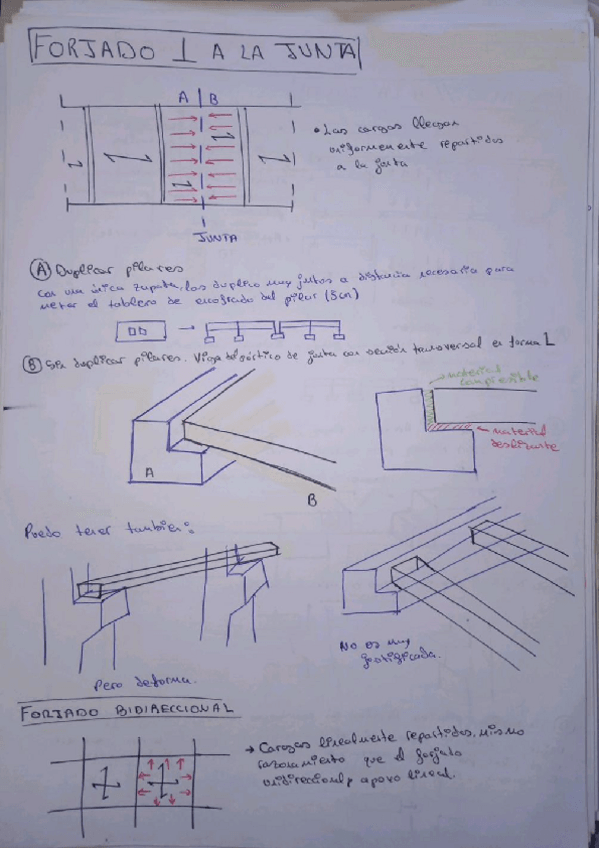 FORJADO ⊥ A LA JUNTA
A B
• Las cargas llegan
uniformemente repartidas
a la junta
JUNTA
(A) Duplicar pilares
con una única zapata, los duplico muy juntos a distancia necesaria para
meter el tablero de encofrado del pilar (5cm)
(B) Sin duplicar pilares. Viga de pórtico de junta con sección transversal en forma L
material
compresible
material
deslizante
A
B
Puedo tener también:
No es muy
justificada.
Pero deforma.
FORJADO BIDIRECCIONAL
→ Cargas linealmente repartidas, mismo
razonamiento que el forjado
unidireccional, apoyo lineal.